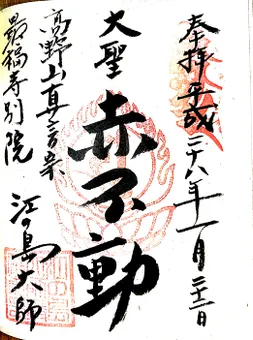 奉拝 平成二十八年十一月二十二日
大聖
赤不動
高野山真言宗
最福寺別院
江の島大師